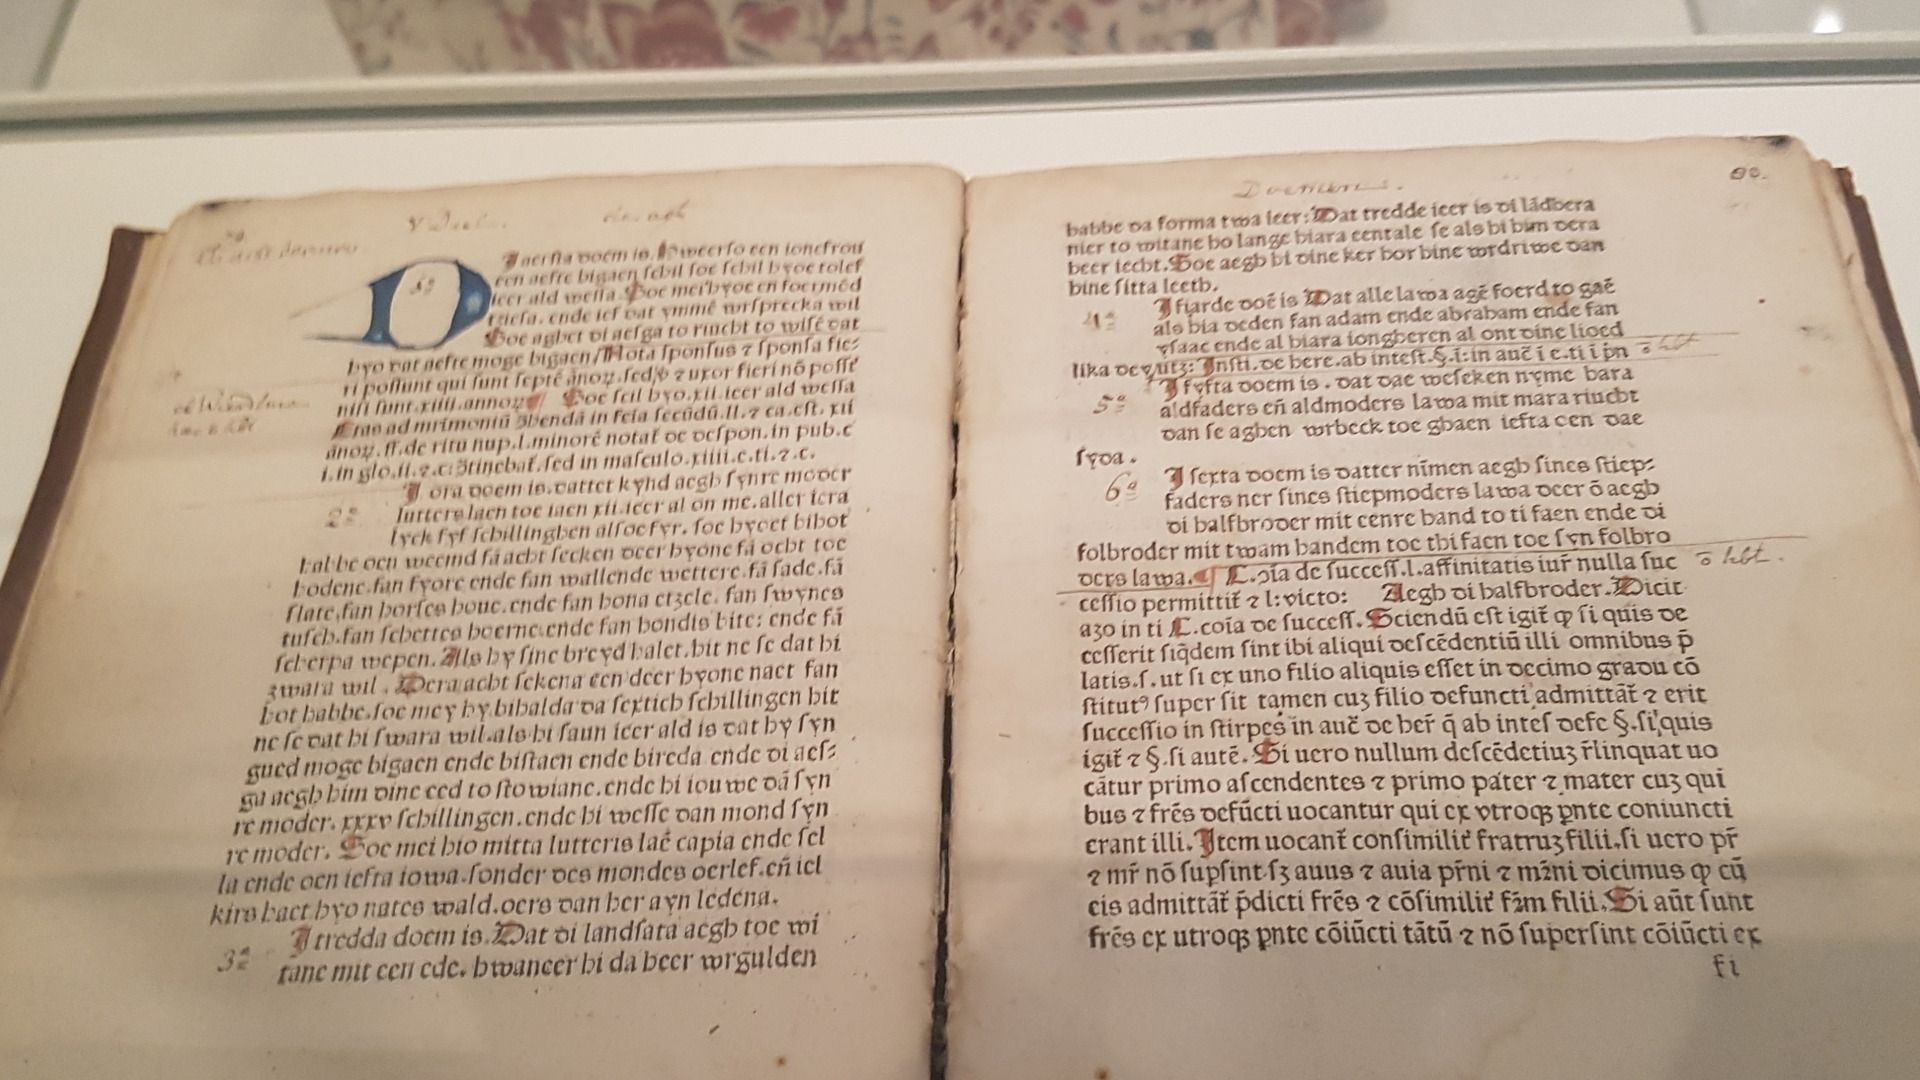 J aersta doem is. Hweerso een ioncfrou
een aefte bigaen schil soe schil hyoe tolef
ieer ald wessa. Soe mei hyoe en foermēd
tziesa. ende ief dat ymmē wrsprecka wil
Soe aghet di aesga to riucht to wisē dat
hyo dat aefte moge bigaen/ Nota sponsus ⁊ sponsa fie⸗
ri possunt qui sunt septē ānoꝝ. sed ⁊ uxor fieri nō possūt
nisi sunt .xiiii. annoꝝ Soe scil hyo .xii. ieer ald wessa
Etas ad mrimoniū
ānoꝝ. ff. de ritu nup. l. minorē notat̄ de despon. in pub. c
i. in glo. ii. ⁊ . sed in masculo .xiiii. e. ti. ⁊ . c.
J ora doem is. dattet kynd aegh synre moder
2ᵃ
lutters laen toe iaen xii. ieer al on me. aller iera
lyck fyf schillinghen alsoe fyr. soe hyoet bihot
halbe oen weemd fā acht secken deer hyone fā ocht toe
hodene. fan fyore ende fan wallende wettere. fā sade. fā
flate. fan horses houe. ende fan hona etzele. fan swynes
tusch. fan schettes hoerne. ende fan hondis bite: ende fā
scherpa wepen. Als hy sine breyd halet. hit ne se dat hi
zwara wil. Dera acht sekena een deer hyone naet fan
bot habbe. soe mey hy. bihalda da sextich schillingen hit
ne se dat hi swara wil. als hi saun ieer ald is dat hy syn
gued moge bigaen ende bistaen ende bireda ende di aes⸗
ga aegh him dine eed to stowiane. ende hi iouwe dā syn
re moder. xxxv schillingen. ende hi wesse dan mond syn
re moder. Soe mei hio mitta lutteris laē capia ende sel
la ende oen iefta iowa. sonder des mondes oerlef. eñ iel
kirs haet hyo nates wald. oers dan her ayn ledena.
J tredda doem is. Dat di landsata aegh toe wi
3ᵃ
tane mit een ede. hwaneer hi da heer wrgulden
90.
habbe da forma twa ieer: Dat tredde ieer is di lādhera
nier to witane ho lange hiara eentale se als hi him dera
heer iecht. Soe aegh hi dine ker hor hine wrdriwe dan
hine sitta leeth.
J fiarde doē is Dat alle lawa agē foerd to gaē
4ᵃ
als hia deden fan adam ende abraham ende fan
ysaac ende al hiara iongheren al ont dine lioed
lika Insti. de here. ab intest. §. i: in auc̄ i e. ti i pn
J fyfta doem is . dat dae weseken nyme hara
5ᵃ
aldfaders eñ aldmoders lawa mit mara riucht
dan se aghen wrbeck toe ghaen iefta oen dae
syda .
J sexta doem is datter nīmen aegh sines stiep⸗
6ᵃ
faders ner sines stiepmoders lawa deer ō aegh
di halfbroder mit eenre hand to ti faen ende di
folbroder mit twam handem toe thi faen toe syn folbro
ders lawa. C. ɔ̄ia de success. l. affinitatis iur̄ nulla suc
cessio permittit̄ ⁊ l: victo: Aegh di halfbroder. Dicit
azo in ti C. coīa de success. Sciendū est igit̄ ꝙ si quis de
cesserit siq̄dem sint ibi aliqui descēdentiū illi omnibus p̄
latis. s. ut si ex uno filio aliquis esset in decimo gradu cō
stitutꝰ super sit tamen cuz filio defuncti admittāt̄ ⁊ erit
successio in stirpes in auc̄ de her̄ q̄ ab intes defe §. si quis
igit̄ ⁊ §. si autē. Si uero nullum descēdētiuz r̄linquat uo
cātur primo ascendentes ⁊ primo pater ⁊ mater cuz qui
bus ⁊ frēs defūcti uocantur qui ex vtroqꝫ pn̄te coniuncti
erant illi. Item uocant̄ consimilit̄ fratruz filii. si uero pr̄
⁊ mr̄ nō supsint sꝫ auus ⁊ auia pr̄ni ⁊ mr̄ni dicimus ꝙ cū
eis admittāt̄ p̄dicti frēs ⁊ cōsimilit̄ frm̄ filii. Si aūt sunt
frēs ex utroqꝫ pn̄te cōiūcti tātū ⁊ nō supersint cōiūcti ex
fi